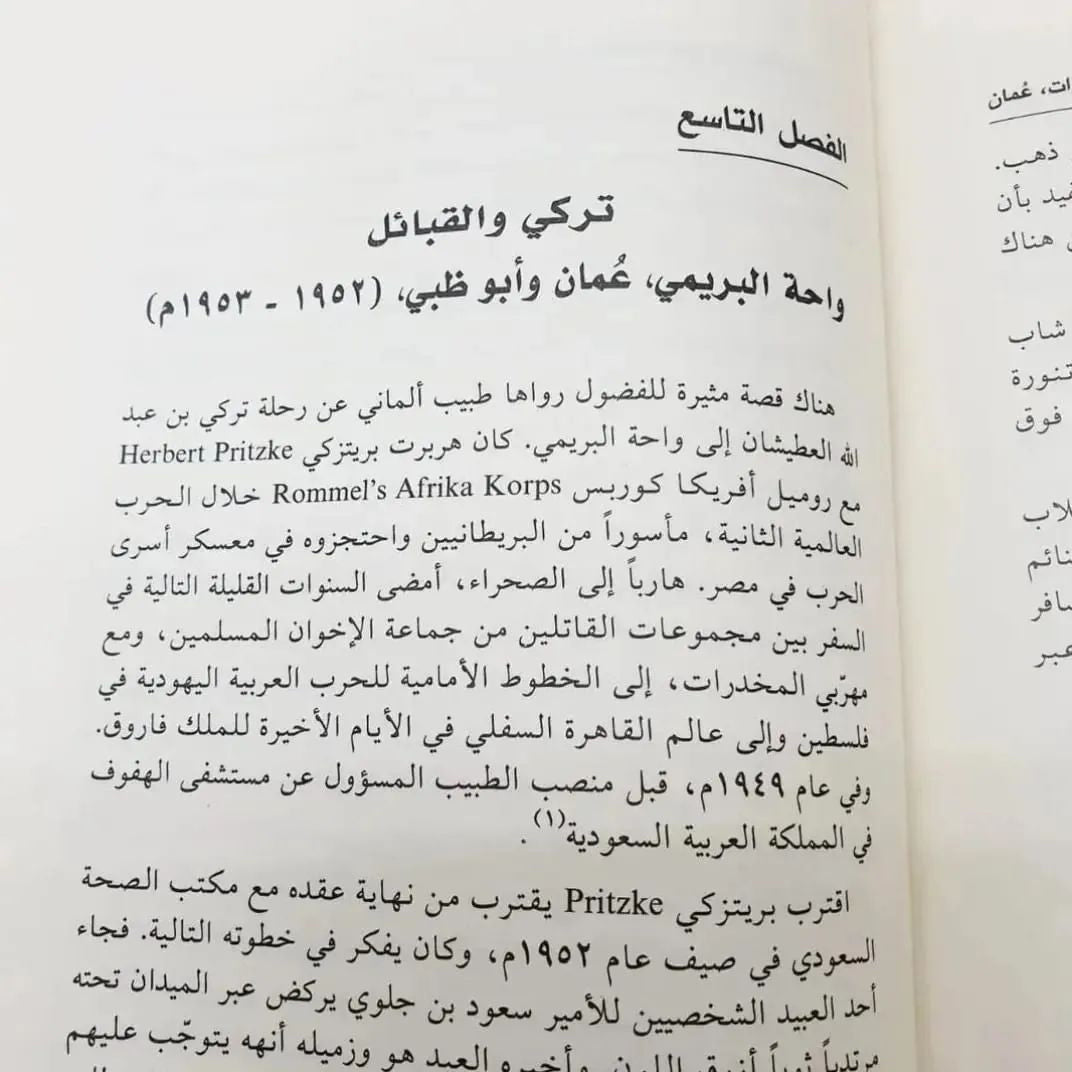 الفصل التاسع
تركي والقبائل
واحة البريمي، عُمان وأبو ظبي، (١٩٥٢ - ١٩٥٣م)
هناك قصة مثيرة للفضول رواها طبيب ألماني عن رحلة تركي بن عبد
الله العطيشان إلى واحة البريمي. كان هربرت بريتزكي Herbert Pritzke
مع روميل أفريكا كوربس Rommel's Afrika Korps خلال الحرب
العالمية الثانية، مأسوراً من البريطانيين واحتجزوه في معسكر أسرى
الحرب في مصر. هارباً إلى الصحراء، أمضى السنوات القليلة التالية في
السفر بين مجموعات القاتلين من جماعة الإخوان المسلمين، ومع
مهرّبي المخدرات، إلى الخطوط الأمامية للحرب العربية اليهودية في
فلسطين وإلى عالم القاهرة السفلي في الأيام الأخيرة للملك فاروق.
وفي عام ١٩٤٩م، قبل منصب الطبيب المسؤول عن مستشفى الهفوف
في المملكة العربية السعودية(١).
اقترب بريتزكي Pritzke يقترب من نهاية عقده مع مكتب الصحة
السعودي في صيف عام ١٩٥٢م، وكان يفكر في خطوته التالية. فجاء
أحد العبيد الشخصيين للأمير سعود بن جلوي يركض عبر الميدان تحته
مرتدياً ثوباً أزرق اللون وأخبره العبد هو وزميله أنه يتوجّب عليهم
ات، عُمان
ذهب.
فيد بأن
هناك
شاب
تنورة
فوق
لاب
نائم
سافر
عبر